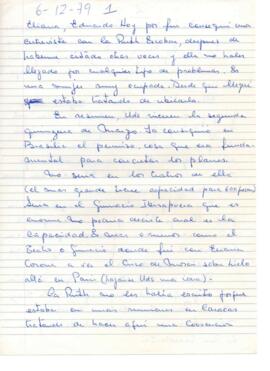 6-12-79 1
Eliana, Eduardo Hoy por fin conseguí una
entrevista con la Ruth Escobar, después de
haberme citado otras veces y ella no haber
llegado por cualquier tipo de problemas. Es
una mujer muy ocupada. Desde que llegué
estaba tratando de ubicarla.
En resumen, Uds vienen la segunda
quincena de Marzo. Ya consiguió en
Brasilia el permiso, cosa que era funda-
mental para concretar los planes.
No será en los teatros de ella
(el más grande tiene capacidad para
Será en el Gimnasio Ibirapuera que es
enorme. No podría decirte cual es la
capacidad. Es más o menos como el
Teatro o Gimnasio donde fui con Eliana
Corona a ver el Circo de Moscú sobre hielo
allá en París
La Ruth no les había escrito porque
estaba en unas reuniones en Caracas
tratando de hacer allí una